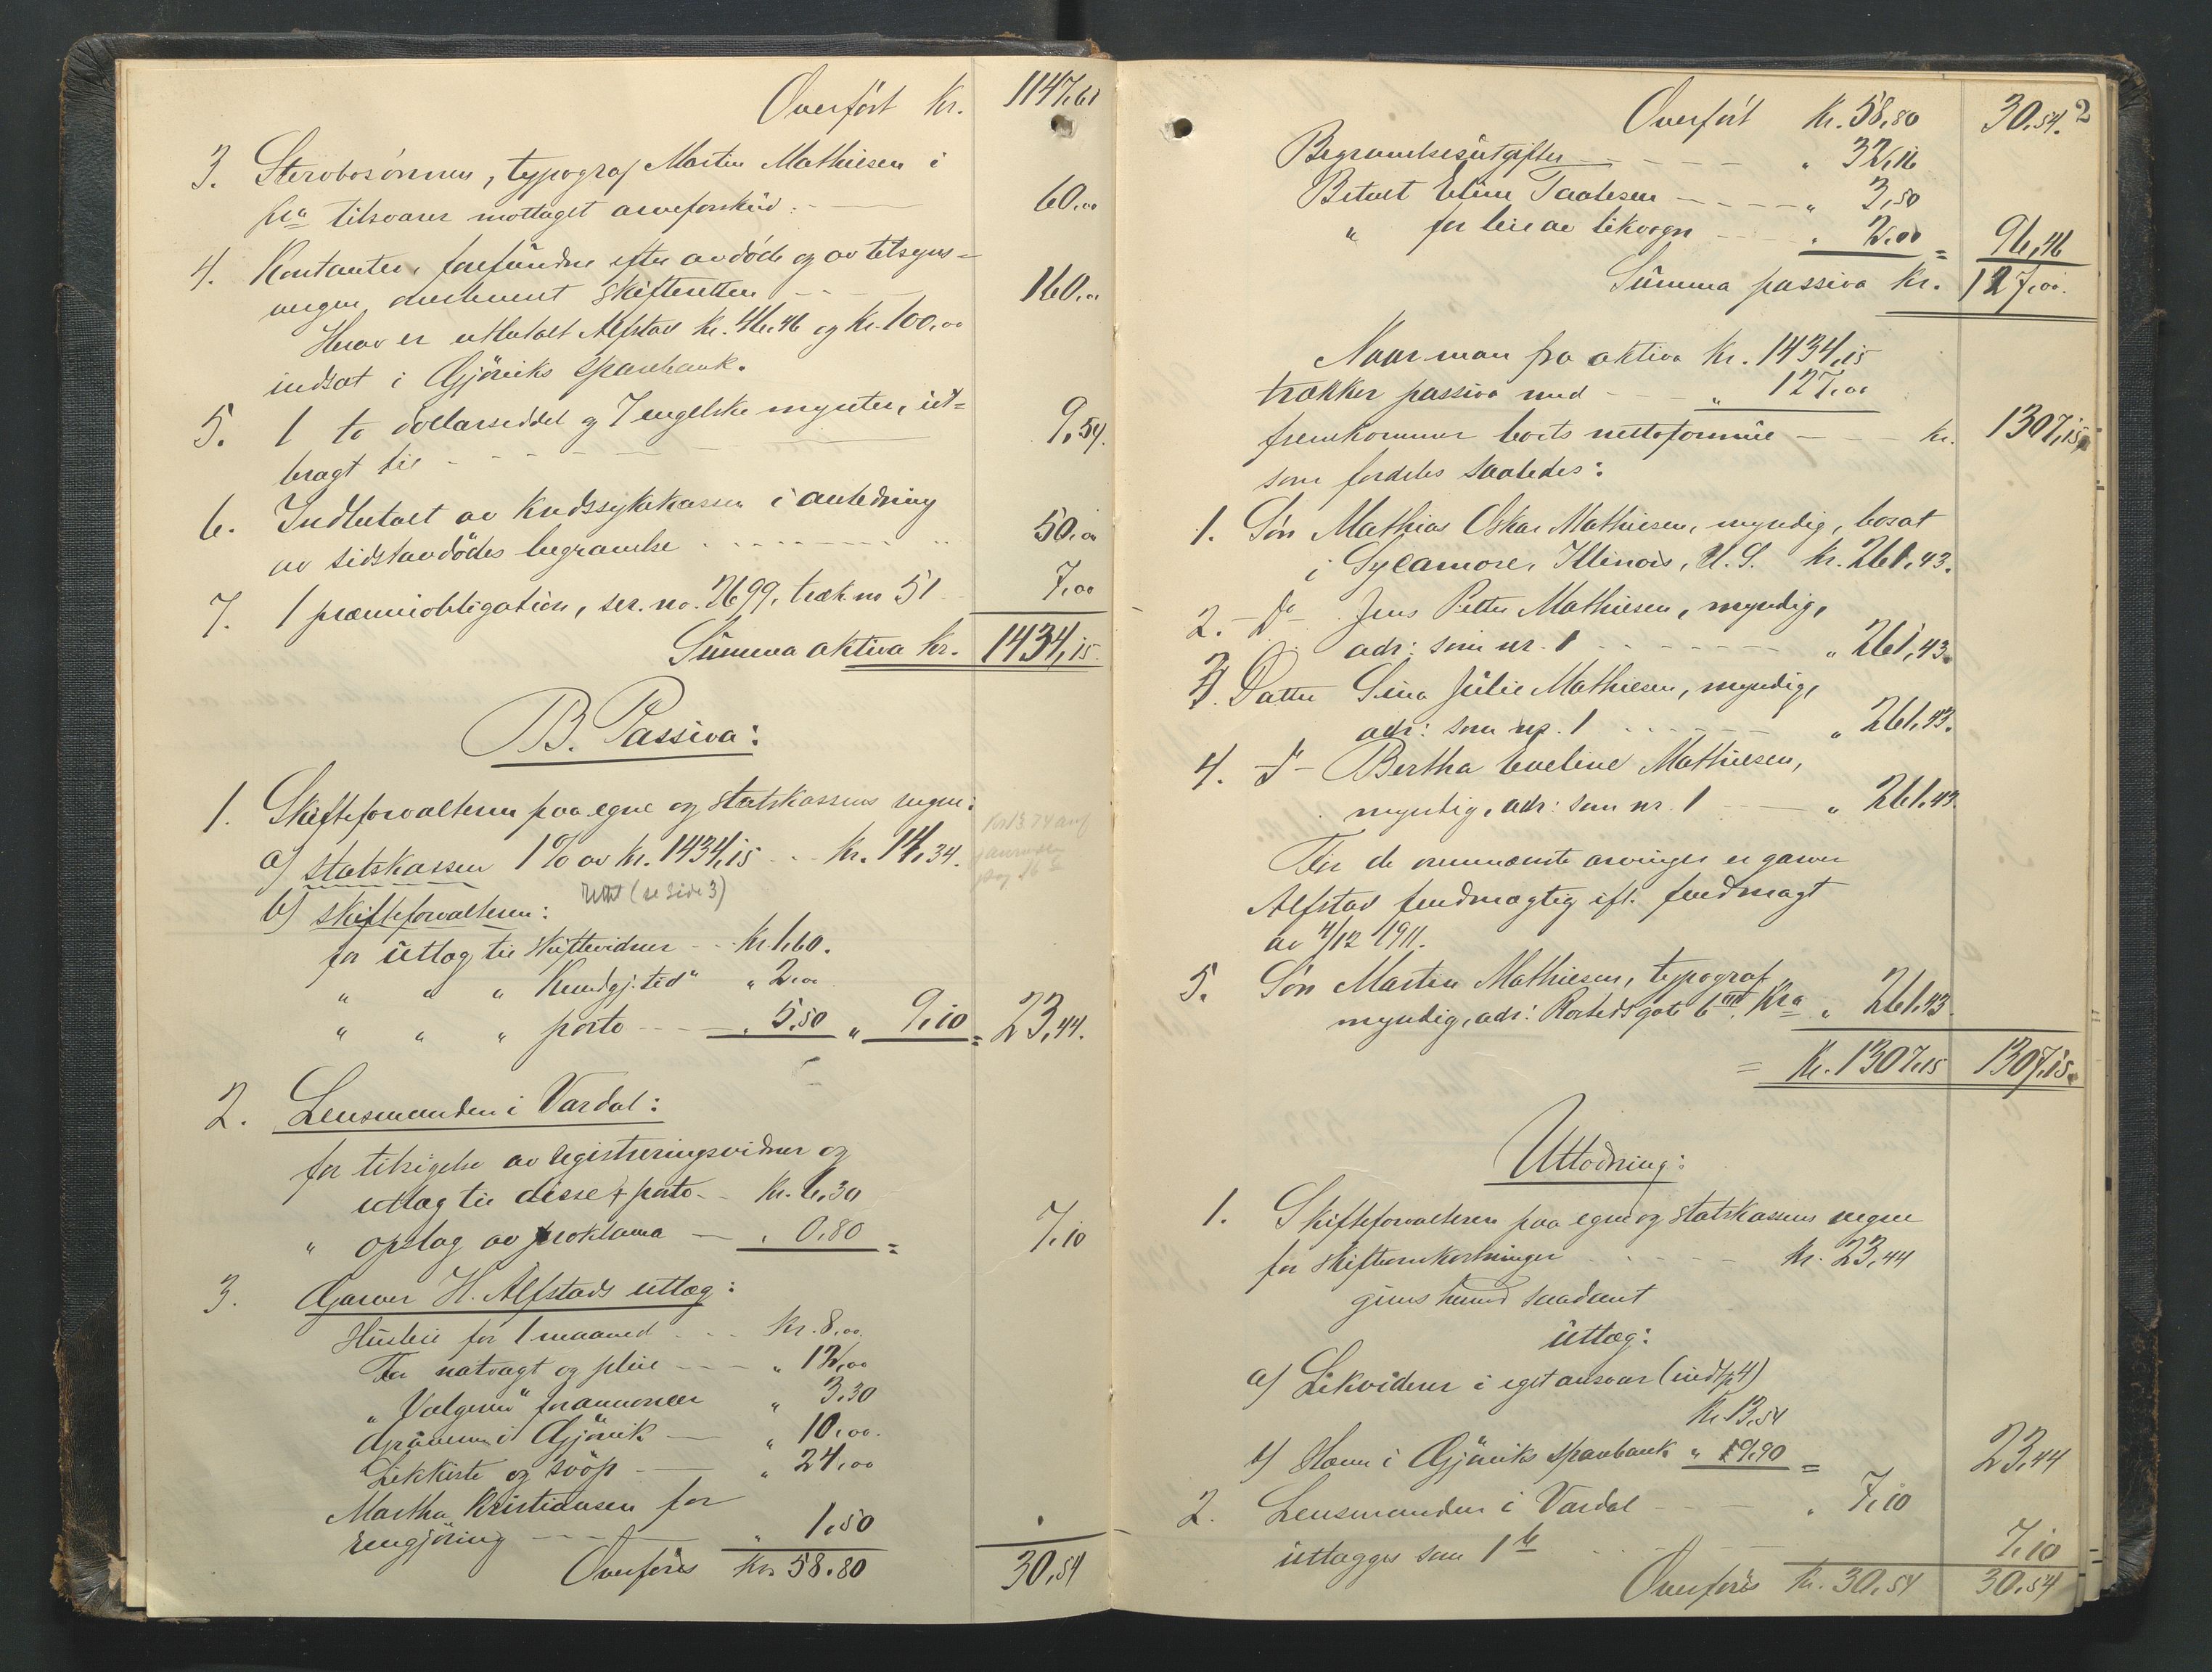 Overført Kr. 1147,61
3. Sterobosønnen, typograf Martin Mathiesen i
Kra tilsvarer mottaget arveforskud: 60,00
4. Kontanter, forefundne efter avdöde og av tilsyns-
vergen ankement Skifteretten 160,00
Herav er utbetalt Alfstad kr. 46,46 og kr. 100,00
indsat i Gjöviks Sparebank.
5. 1 to dollarseddel og 7 engelske mynter, ut-
bragt til 9,54.
6. Indbetalt av Kredssykekassen i anledning
av sidstavdödes begravelse 50,00
7. 1 præmieobligation, ser. no. 2699, træk no 51 7,00
Summa aktiva kr. 1434,15.
B. Passiva:
1. Skifteforvalteren paa egne og statskassens vegne:
a) Statskassen 1% av kr. 1434,15 kr. 14,34.
Rettet (se side 3)
b) skifteforvalteren:
for utlæg til Skiftevidner kr. 1,60.
" " " Kundgj.tid" " 2,00
" " " porto " 5,50 " 9,10 = 23,44.
2. Lensmanden i Vardal:
for tilsigelse av registreringsvidner og
utlæg til disse + porto kr. 6,30
" opslag av proklama " 0,80 = 7,10
3. Garver H. Alfstads utlæg:
Husleie for 1 maaned kr. 8,00
For natvagt og pleie " 12,00
" Velgeren" for annoncer " 3,30
Graveren i Gjövik " 10,00.
Likkiste og svöp " 24,00
Martha Kristiansen for
rengjöring " 1,50
Overföres Kr. 58.80 30,54
Overfört Kr. 58,80 30,54. 2
Begravelsesutgifter " 32,16
Betalt Eline Paulsen " 3,50
" for leie av likvogn " 2,00 = 96,46
Summa passiva kr. 127,00.
Naar man fra aktiva kr. 1434,15
trækker passiva med " 127,00
fremkommer boets nettoformue kr. 1307,15
som fordeles saaledes:
1. Søn Mathias Oskar Mathiesen, myndig, bosat
i Sycamore, Illinois, U.S. kr. 261,43.
2. -D- Jens Petter Mathiesen, myndig,
adr: som nr. 1 " 261,43
3. Datter Lina Julie Mathiesen, myndig,
adr: som nr. 1 " 261,43.
4. -D- Bertha Eveline Mathiesen,
myndig, adr: som nr. 1 " 261,43
For de ovennævnte arvinger er garver
Alfstad fuldmægtig ifl. fuldmagt
av 4/12 1911.
5. Søn Martin Mathiesen, typograf
myndig, adr: Rostedsgate 6 III, Kra " 261,43
= Kr. 1307,15 1307,15.
Utlodning:
1. Skifteforvalteren paa egne og statskassens vegne
for skifteomkostninger kr. 23,44
gives herved saadant
utlæg:
a) Likviderer i eget ansvar (indt.p4)
Kr. 13,54
b) Herav i Gjöviks sparebank " 9,90 = 23,44
2. Lensmanden i Vardal " 7,10
utlægges som 1 b 7,10
Overföres Kr. 30,54 30,54